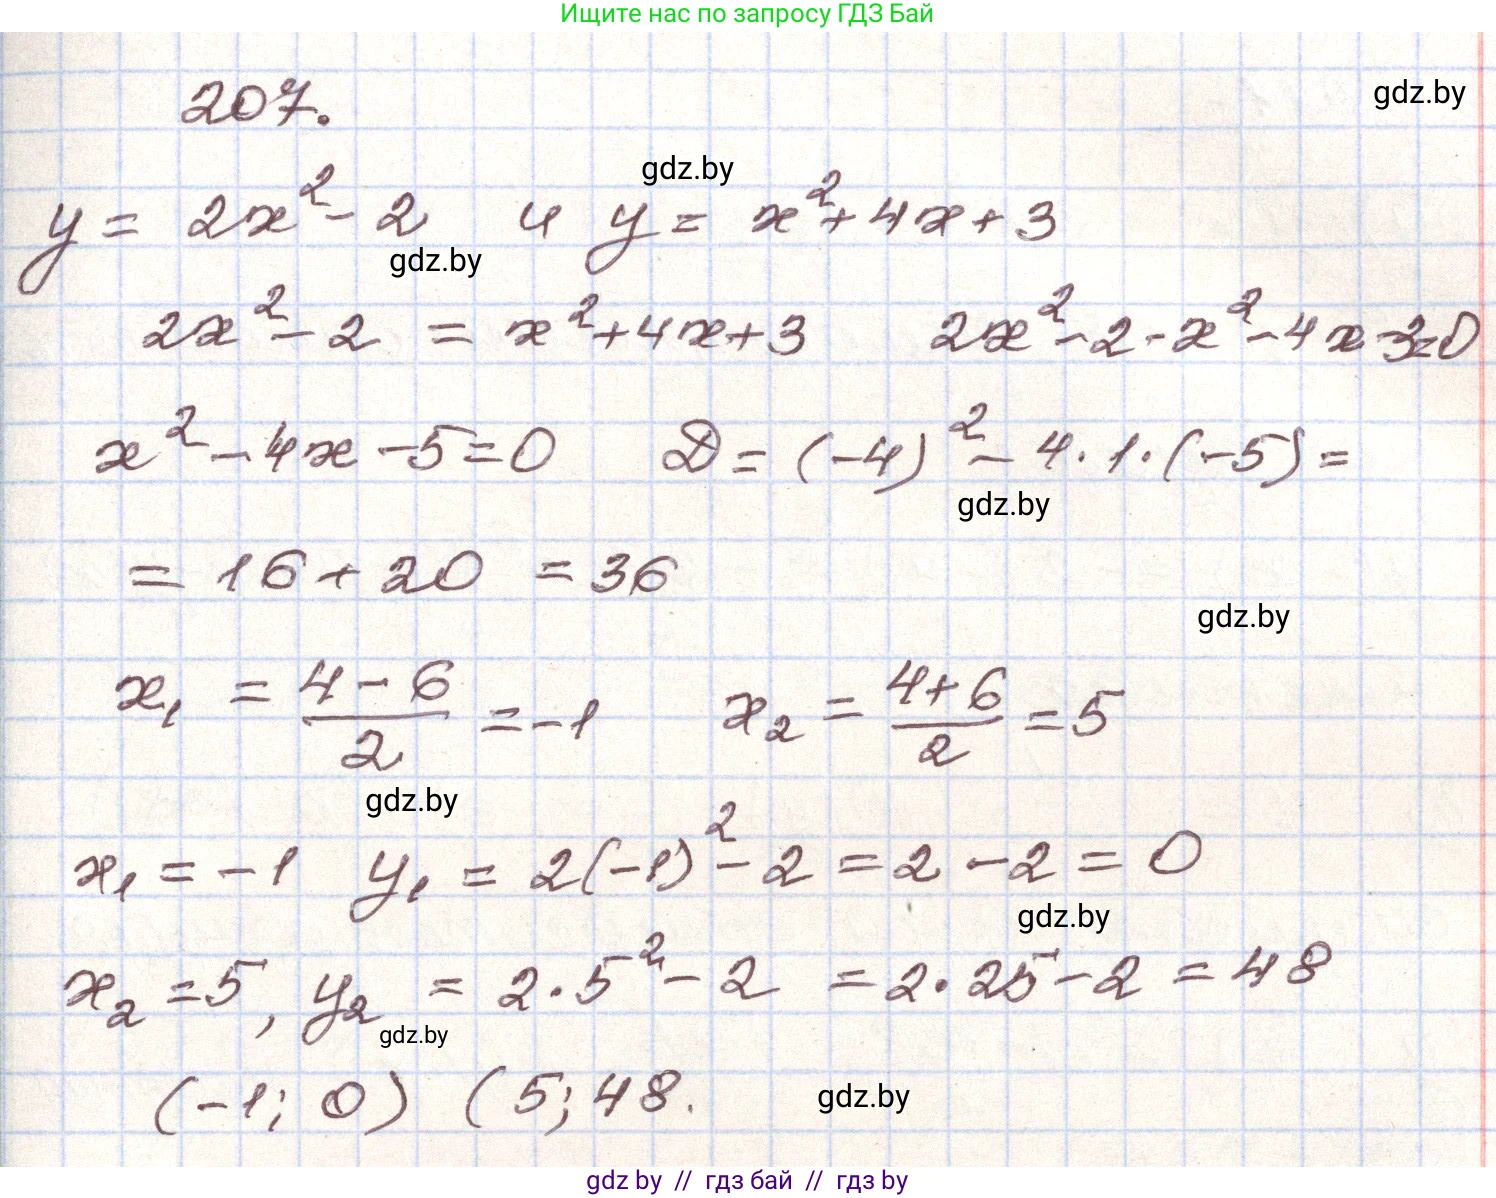 Ищите нас по запросу ГДЗ Бай
207.
gdz.by
gdz.by
y = 2x² - 2 и y = x² + 4x + 3
gdz.by
2x² - 2 = x² + 4x + 3 2x² - 2 - x² - 4x - 3 = 0
x² - 4x - 5 = 0 D = (-4)² - 4 · 1 · (-5) =
gdz.by
= 16 + 20 = 36
gdz.by
x₁ = (4 - 6)/2 = -1 x₂ = (4 + 6)/2 = 5
gdz.by
x₁ = -1 y₁ = 2(-1)² - 2 = 2 - 2 = 0
gdz.by
x₂ = 5, y₂ = 2 · 5² - 2 = 2 · 25 - 2 = 48
gdz.by
(-1; 0) (5; 48.
gdz.by
gdz by // гдз бай // гдз by